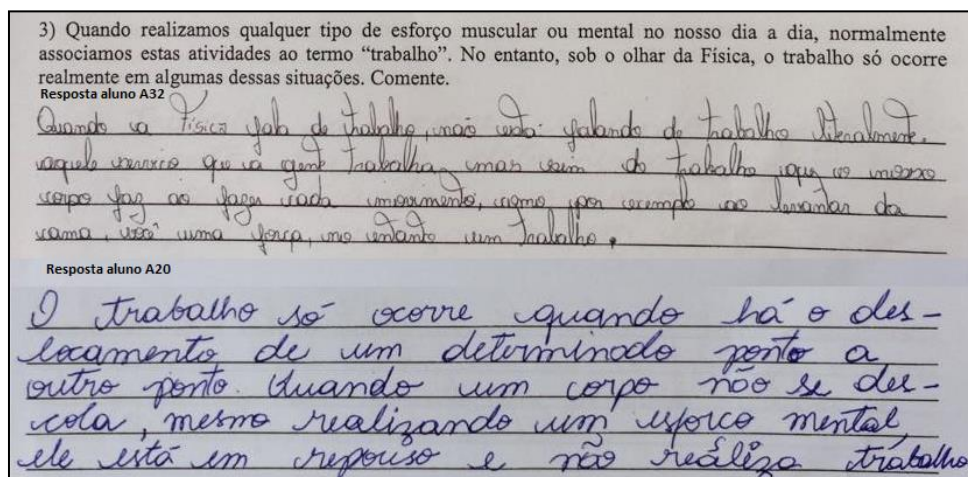 3) Quando realizamos qualquer tipo de esforço muscular ou mental no nosso dia a dia, normalmente
associamos estas atividades ao termo “trabalho”. No entanto, sob o olhar da Física, o trabalho só ocorre
realmente em algumas dessas situações. Comente.
Resposta aluno A32
Quando a Física fala de trabalho, não está falando do trabalho literalmente,
aquele serviço que a gente trabalha, mas sim do trabalho que o nosso
corpo faz ao fazer cada movimento, como por exemplo ao levantar da
cama, você uma força, no entanto um trabalho.
Resposta aluno A20
O trabalho só ocorre quando há o des-
locamento de um determinado ponto a
outro ponto. Quando um corpo não se des-
cola, mesmo realizando um esforco mental,
ele está em repouso e não realiza trabalho